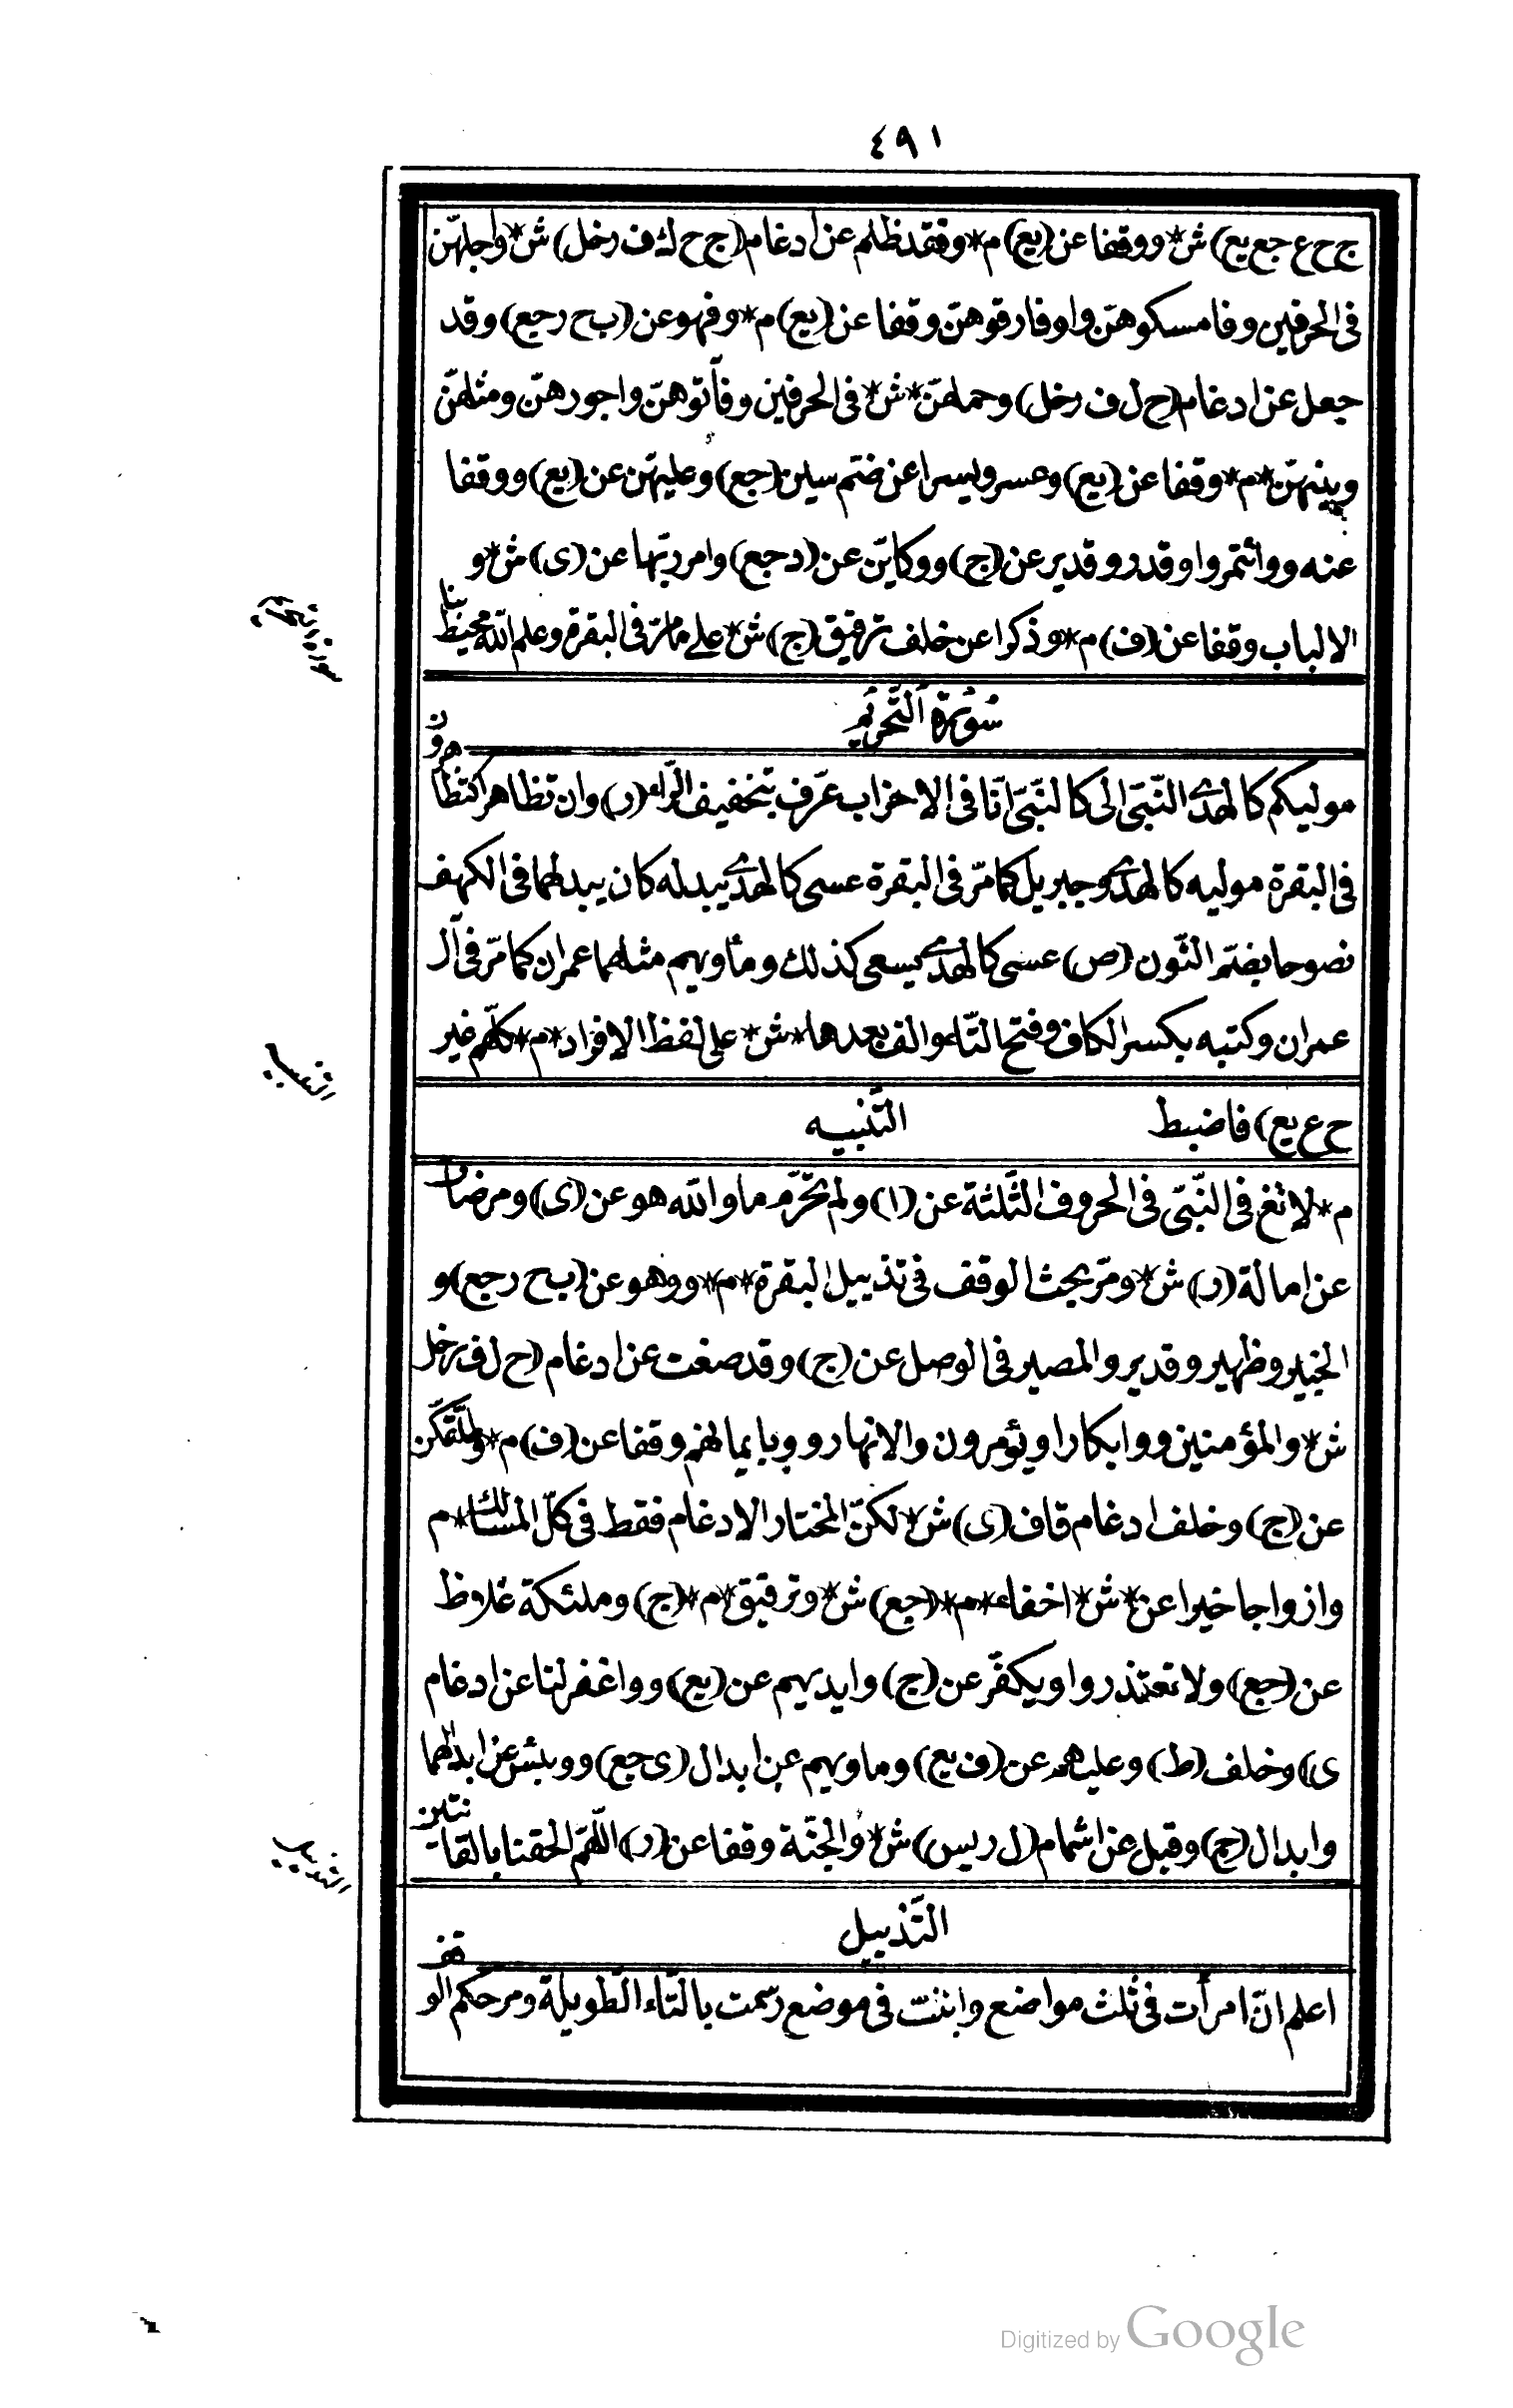 ٤٩١
ج ح ع جع يع) ش* ووقفا عن (يع) م* وفقد ظلم عن ادغام (ج ح ك ف رخل) ش* واجلهنّ
فى الحرفين وفامسكوهنّ واوفارقوهنّ وقفا عن (يع) م* وفهو عن (ب ح رجيع) وقد
جعل عن ادغام (ح ل ف رخل) وحملهنّ* ش* فى الحرفين وفآتوهنّ واجورهنّ ومثلهنّ
وبينهنّ* م* وقفا عن (يع) وعسر ويسرا عن ضمّ سين (جع) وعليهنّ عن (يع) ووقفا
عنه ووائتمروا وقدر وقدير عن (ج) ووكايّن عن (د جع) وامر ربّها عن (ى) ش* و
الالباب وقفا عن (ف) م* وذكرا عن خلف ترقيق (ج) ش* على ما مرّ فى البقرة وعلم اللّه محيط بنا
سورة التحريم
سُورَةُ التَّحْرِيْمِ
موليكم كالهدى النّبىّ الى كالنّبىّ انّا فى الاحزاب عرّف بتخفيف الرّاء (ر) وان تظاهرا كتظاهرون
فى البقرة موليه كالهدى وجبريل كما مرّ فى البقرة عسى كالهدى يبدله كان يبدلهما فى الكهف
نصوحا بضمّ النّون (ص) عسى كالهدى يسعى كذلك ومأويهم مثلهما عمران كما مرّ فى آل
عمران وكتبه بكسر الكاف وفتح التّاء والف بعدها* ش* على لفظ الافراد* م* كلّهم غير
التنبيه
ح ع يع) فاضبط التّنبيه
م* لا تغ فى النّبىّ فى الحروف الثّلثة عن (ا) ولم تحرّم ما واللّه هو عن (ى) ومرضات
عن امالة (ر) ش* ومرّ بحث الوقف فى تذييل البقرة* م* ووهو عن (ب ح رجع) و
الخبير وظهير وقدير والمصير فى الوصل عن (ج) وقد صغت عن ادغام (ح ل ف رخل
ش* والمؤمنين ووابكارا ويؤمرون والانهار ووبايمانهم وقفا عن (ف) م*
عن (ج) وخلف ادغام قاف (ى) ش* لكنّ المختار الادغام فقط فى كلّ المسالك* م
وازواجا خيرا عن* ش* اخفاء* م* (جع) ش* وترقيق* م* (ج) وملئكة غلاظ
عن (جع) ولا تعتذروا ويكفّر عن (ج) وايديهم عن (يع) وواغفر لنا عن ادغام
ى) وخلف (ط) وعليهم عن (ف يع) وماويهم عن ابدال (ى جع) ووبئس عن ابدالهما
وابدال (ج) وقيل عن اشمام (ل ريس) ش* والجنّة وقفا عن (ر) اللّهمّ الحقنا بالقانتين
التذييل
التّذييل
اعلم انّ امرأت فى ثلث مواضع وابنت فى موضع رسمت بالتّاء الطّويلة ومر حكم الوقف
Digitized by Google